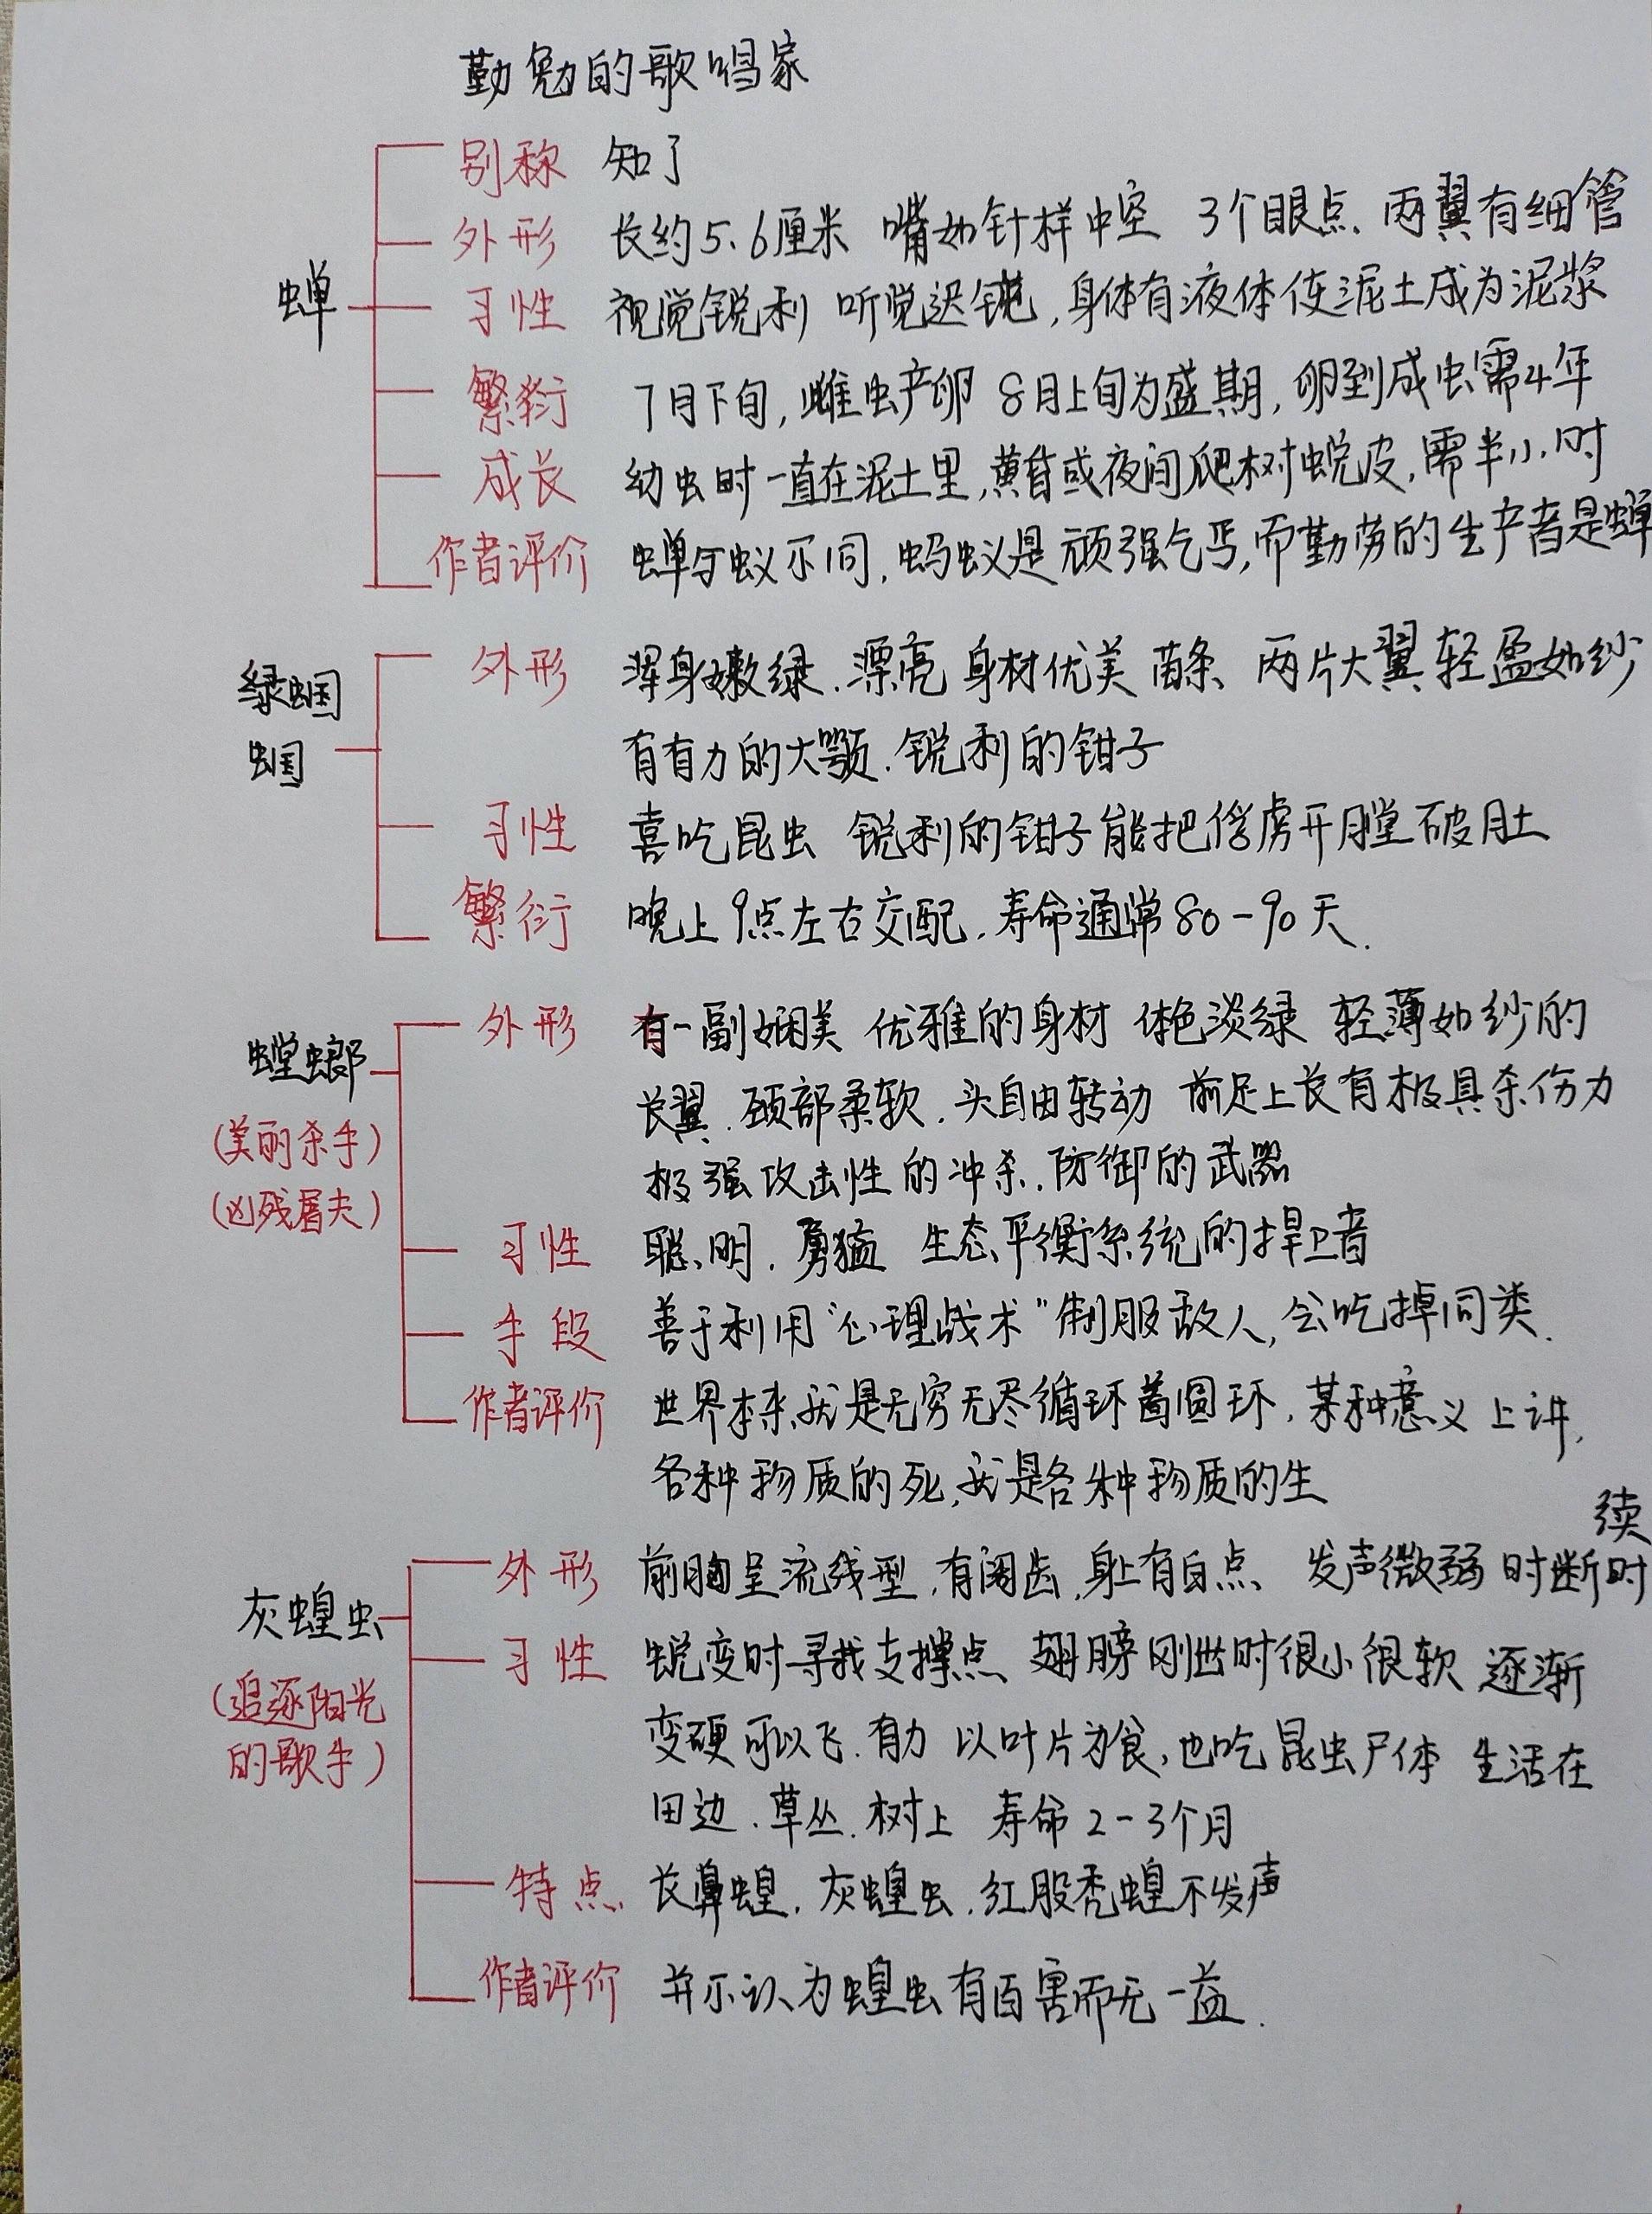 勤勉的歌唱家
别称 知了
外形 长约5.6厘米 嘴如针样中空 3个眼点、两翼有细管
蝉 习性 视觉锐利 听觉迟钝,身体有液体使泥土成为泥浆
繁衍 7月下旬,雌虫产卵 8月上旬为盛期,卵到成虫需4年
成长 幼虫时一直在泥土里,黄昏或夜间爬树蜕皮,需半小时
作者评价 蝉与蚁不同,蚂蚁是顽强乞丐,而勤劳的生产者是蝉
绿蝈蝈 外形 浑身嫩绿、漂亮 身材优美 苗条 两片大翼轻盈如纱
有有力的大颚、锐利的钳子
习性 喜吃昆虫 锐利的钳子能把俘虏开膛破肚
繁衍 晚上9点左右交配,寿命通常80-90天.
螳螂 外形 有一副娴美 优雅的身材 体色淡绿 轻薄如纱的
(美丽杀手) 长翼、颈部柔软、头自由转动 前足上长有极具杀伤力
(凶残屠夫) 极强攻击性的冲杀、防御的武器
习性 聪明、勇猛 生态平衡系统的捍卫者
手段 善于利用“心理战术”制服敌人,会吃掉同类.
作者评价 世界本来就是无穷无尽循环着圆环,某种意义上讲,
各种物质的死,就是各种物质的生
灰蝗虫 外形 前胸呈流线型,有阔齿,身上有白点 发声微弱 时断时续
(追逐阳光的歌手) 习性 蜕变时寻找支撑点 翅膀刚出时很小很软 逐渐
变硬可以飞、有力 以叶片为食,也吃昆虫尸体 生活在
田边、草丛、树上 寿命2-3个月
特点 长鼻蝗、灰蝗虫、红股秃蝗不发声
作者评价 并不认为蝗虫有百害而无一益.